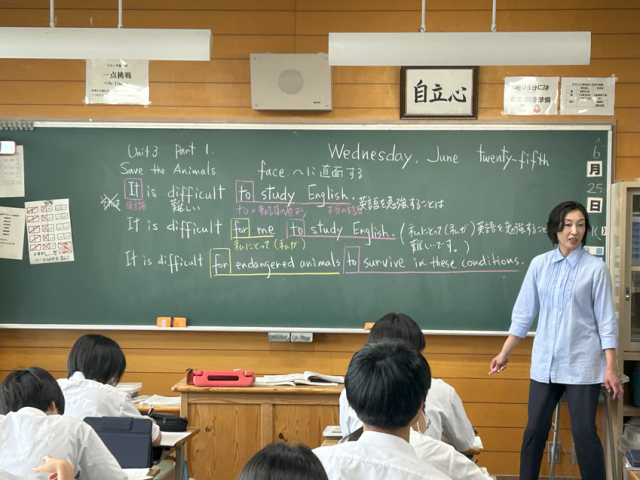 一点挑戦
自立心
Unit 3 Part 1.
Wednesday, June twenty-fifth
6
月
25
日
Save the Animals
face 〜に直面する
It is difficult to study English. 英語を勉強することは
難しい
It is difficult for me to study English. (私にとって(私が)英語を勉強すること
私にとって(私が)
難しいです。)
It is difficult for endangered animals to survive in these conditions.